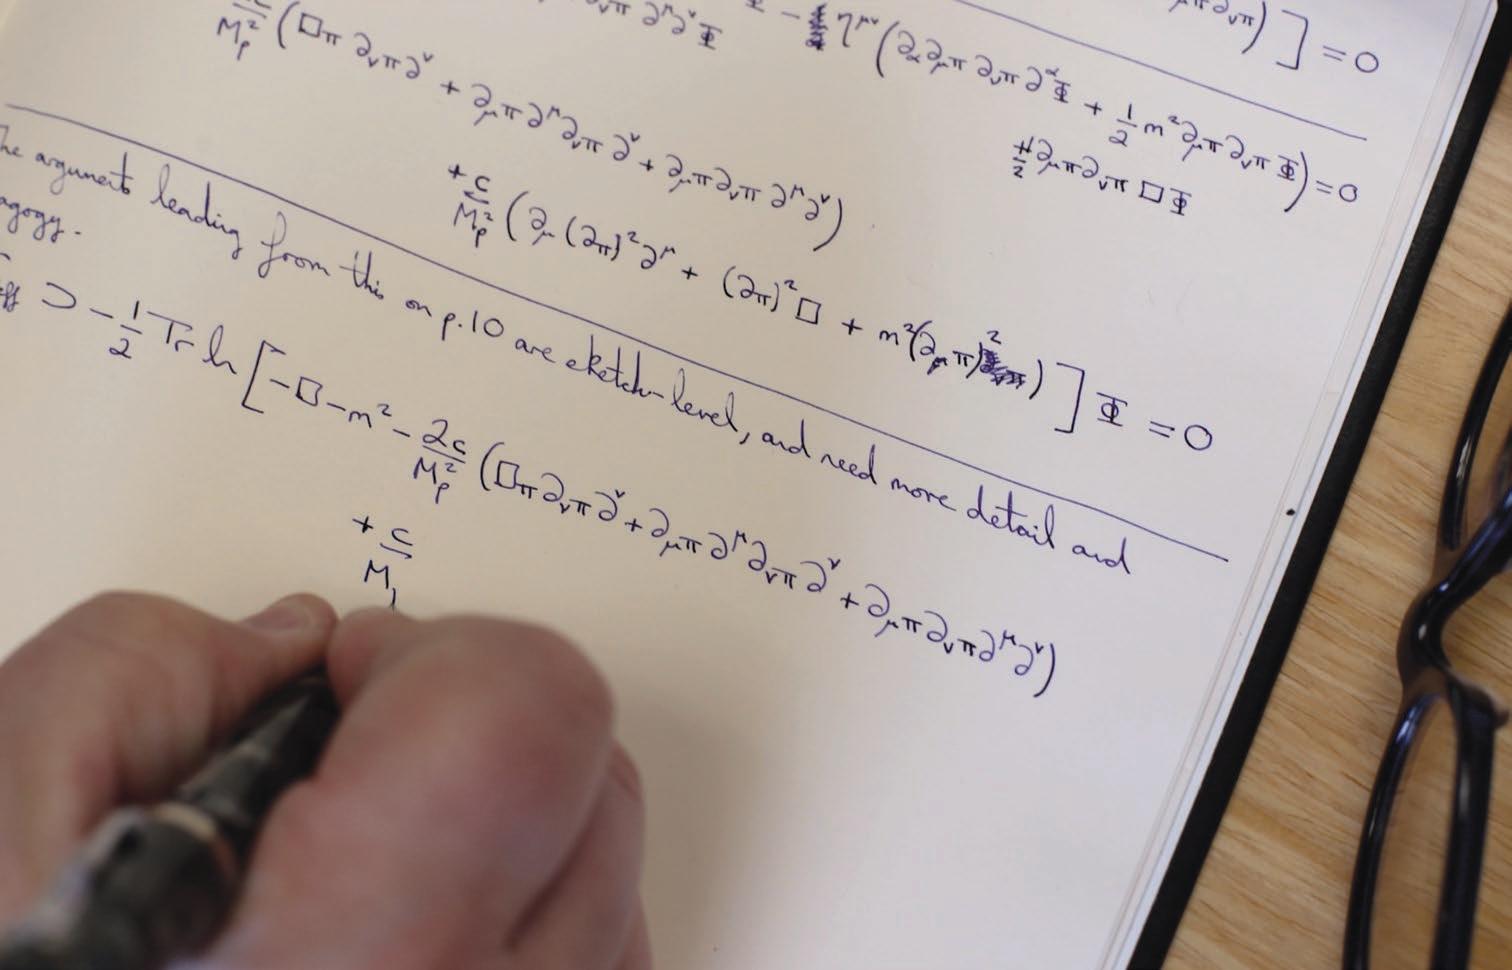 μπ∂_νπ) ] = 0
∂^μ∂^νΦ − η^{μν} (∂_α∂_μπ ∂_νπ ∂^αΦ + 1/2 m²∂_μπ∂_νπ Φ) = 0
1/2 ∂_μπ∂_νπ □Φ
M_p² (□π ∂_νπ∂^ν + ∂_μπ∂^μ∂_νπ ∂^ν + ∂_μπ∂_νπ ∂^μ∂^ν)
+ c/M_p² (∂_μ(∂π)²∂^μ + (∂π)²□ + m²(∂_μπ)²) ] Φ = 0
The arguments leading from this on p.10 are sketch-level, and need more detail and
agogy.
eff ⊃ −1/2 Tr ln [−□−m² − 2c/M_p² (□π∂_νπ∂^ν + ∂_μπ∂^μ∂_νπ∂^ν + ∂_μπ∂_νπ∂^μ∂^ν)
+ c/M